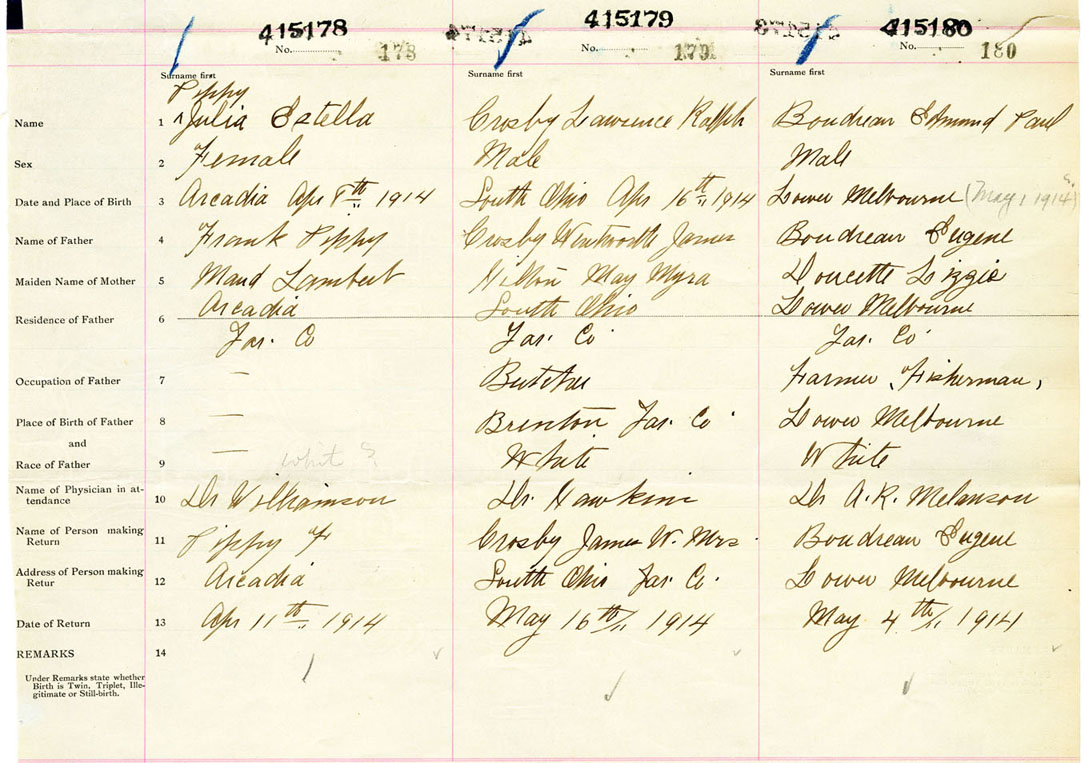 415178 415179 415180
No. 178 No. 179 No. 180
Surname first Surname first Surname first
Pippy
Name 1 ^Julia Estella Crosby Lawrence Ralph Boudreau Edmund Paul
Sex 2 Female Male Male
Date and Place of Birth 3 Arcadia Apr 8th 1914 South Ohio Apr 16th 1914 Lower Melbourne (May 1 1914)
Name of Father 4 Frank Pippy Crosby Wentworth James Boudreau Eugene
Maiden Name of Mother 5 Maud Lambert Hilton May Myra Doucette Lizzie
Residence of Father 6 Arcadia South Ohio Lower Melbourne
Yar. Co Yar. Co Yar. Co
Occupation of Father 7 — Butcher Farmer, Fisherman,
Place of Birth of Father 8 — Brenton Yar. Co Lower Melbourne
and
Race of Father 9 — white ? White White
Name of Physician in at-
tendance 10 Dr Williamson Dr. Hawkins Dr A. R. Melanson
Name of Person making
Return 11 Pippy F Crosby James W. Mrs Boudreau Eugene
Address of Person making
Retur 12 Arcadia South Ohio Yar. Co. Lower Melbourne
Date of Return 13 Apr 11th 1914 May 16th 1914 May 4th 1914
REMARKS 14
Under Remarks state whether
Birth is Twin, Triplet, Ille-
gitimate or Still-birth.